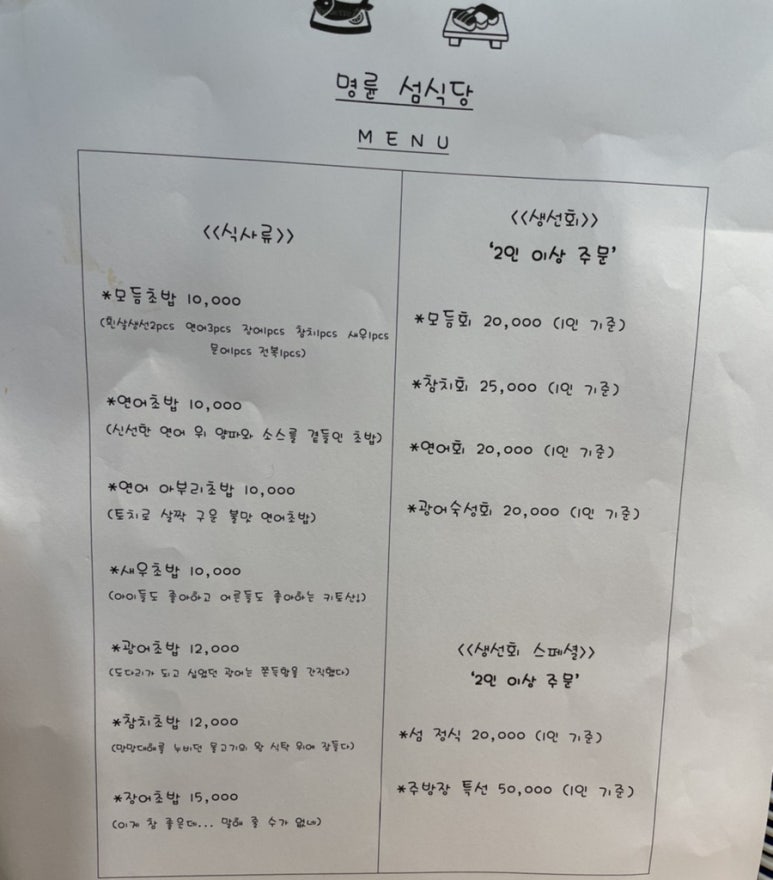 명륜 섬식당
MENU
<<식사류>>
*모듬초밥 10,000
(흰살생선2pcs 연어3pcs 장어1pcs 참치1pcs 새우1pcs
문어1pcs 전복1pcs)
*연어초밥 10,000
(신선한 연어 위 양파와 소스를 곁들인 초밥)
*연어 아부리초밥 10,000
(토치로 살짝 구운 불맛 연어초밥)
*새우초밥 10,000
(아이들도 좋아하고 어른들도 좋아하는 키토산!)
*광어초밥 12,000
(도다리가 되고 싶었던 광어는 쫀득함을 간직했다)
*참치초밥 12,000
(망망대해를 누비던 물고기의 왕 식탁 위에 잠들다)
*장어초밥 15,000
(이게 참 좋은데... 말해 줄 수가 없네)
<<생선회>>
'2인 이상 주문'
*모듬회 20,000 (1인 기준)
*참치회 25,000 (1인 기준)
*연어회 20,000 (1인 기준)
*광어숙성회 20,000 (1인 기준)
<<생선회 스페셜>>
'2인 이상 주문'
*섬 정식 20,000 (1인 기준)
*주방장 특선 50,000 (1인 기준)